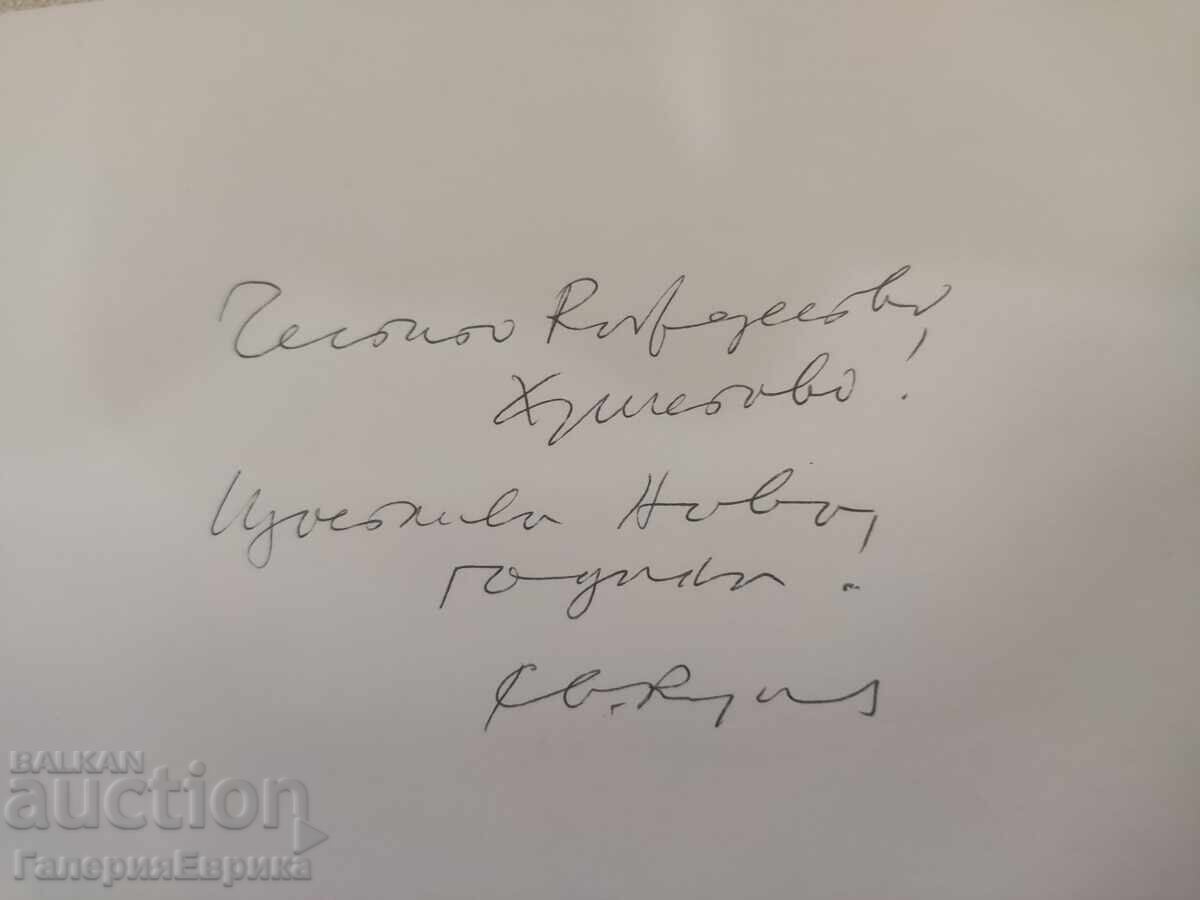 Честито Рождество
Христово!
Щастлива Нова
година!
Св.
BALKAN
auction
ГалерияЕврика